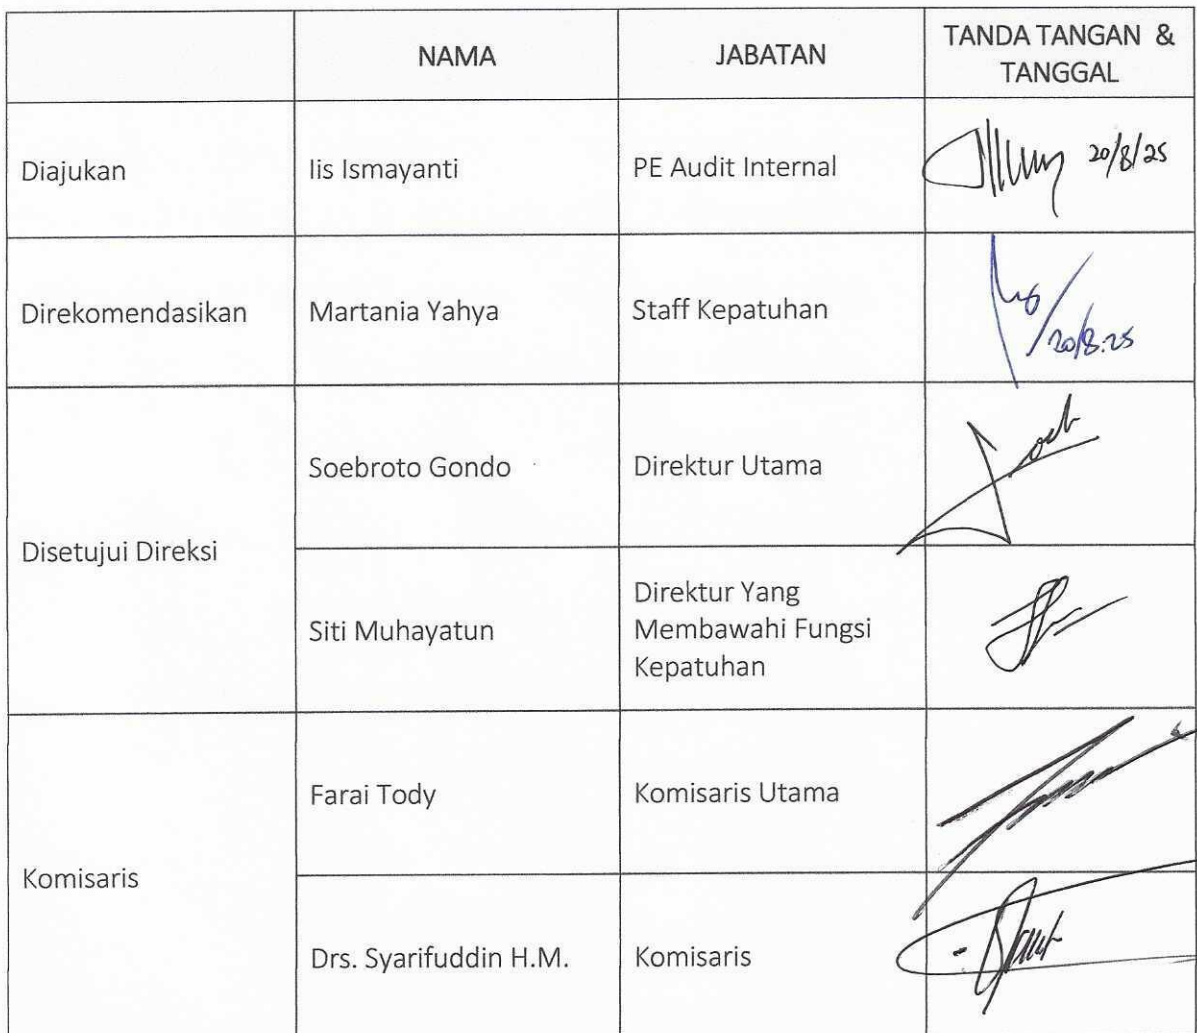 NAMA
JABATAN
TANDA TANGAN &
TANGGAL
Diajukan
Iis Ismayanti
PE Audit Internal
20/8/25
Direkomendasikan
Martania Yahya
Staff Kepatuhan
20/8.25
Disetujui Direksi
Soebroto Gondo
Direktur Utama
Siti Muhayatun
Direktur Yang
Membawahi Fungsi
Kepatuhan
Komisaris
Farai Tody
Komisaris Utama
Drs. Syarifuddin H.M.
Komisaris